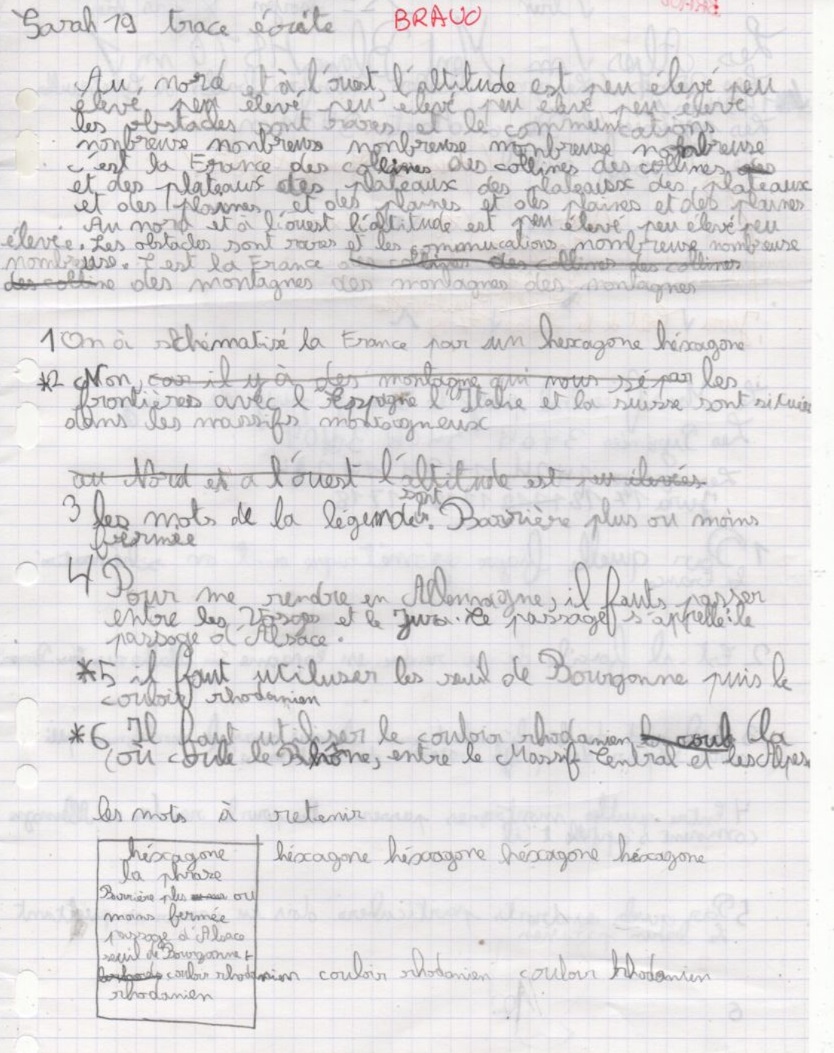 Sarah 19 trace écrite BRAVO
Au, nord et à l'ouest, l'altitude est peu élevé peu
élevé peu élevé, peu élevé peu élevé peu élevé
les obstacles sont rares et le communications
nonbreuse nonbreuse nonbreuse nonbreuse nonbreuse
c'est la France des collines des collines des collines des
et des plateaux des plateaux des plateaux des plateaux
et des plaines, et des plaines et des plaines et des plaines
Au nord et à l'ouest l'altitude est peu élevé, peu élevé peu
élevée. Les obstacles sont rares et les communications nombreuse nombreuse
nombreuse. C'est la France des collines des collines des collines
des colline des montagnes des montagnes des montagnes
1 On à schématisé la France par un hexagone héxagone
*2 Non, car il y à des montagne qui nous sépar les
frontières avec l'Espagne l'Italie et la suisse sont situées
dans les massifs montagneux
au Nord et a l'ouest l'altitude est peu élevés
3 les mots de la légende sont. Barrière plus ou moins
fermée
4 Pour me rendre en Allemagne, il fauts passer
entre les Vosges et le Jura. Le passage s'appelle le
passage d'Alsace.
*5 il faut utiluser les seuil de Bourgonne puis le
couloir rhodanien
*6 Il faut utiliser le couloir rhodanien la coub (la
(où coule le Rhône, entre le Massif Central et les Alpes
les mots à retenir
héxagone héxagone héxagone héxagone héxagone
la phrase
Barrière plus ou
moins fermée
passage d'Alsace
seuil de Bourgonne +
couloir rhodanien couloir rhodanien couloir rhodanien
rhodanien